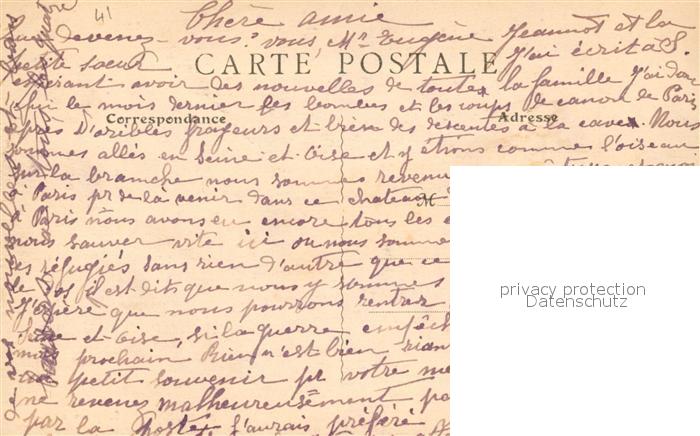 41
Chère amie
que devenez-vous? vous, Mr Eugène Jeannot et la
petite sœur J'ai écrit à S.
CARTE POSTALE
espérant avoir des nouvelles de toute la famille J'ai dû
le mois dernier les bombes et les coups de canon de Paris
Correspondance Adresse
après d'oribles frayeurs et bien des descentes à la cave. Nous
sommes allés en Seine-et-Oise et y étions comme l'oiseau
sur la branche nous sommes revenu
à Paris pr de là venir dans ce chateau M
à Paris nous avons eu encore tous les
nous sauver vite ici où nous sommes
des réfugiés sans rien d'autre que ce
le dos il est dit que nous y sommes
J'espère que nous pourrons rentrer
Seine-et-Oise, si la guerre empêch
mois prochain Rien n'est bien rian
petit souvenir pr votre
ne revenez malheureusement pa
par la Poste J'aurais préféré
de vos nouvelles et
privacy protection
Datenschutz